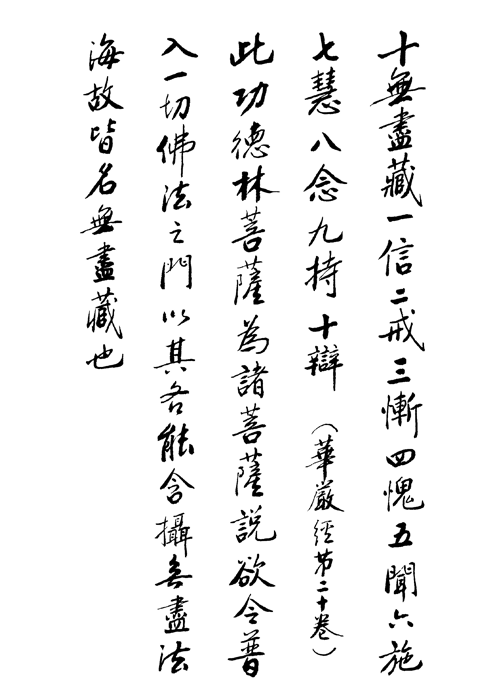 十無盡藏一信二戒三慚四愧五聞六施
七慧八念九持十辯（華嚴經第二十卷）
此功德林菩薩為諸菩薩說欲令普
入一切佛法之門以其各能含攝無盡法
海故皆名無盡藏也